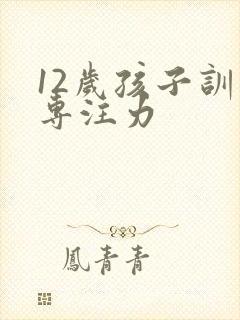 12歲孩子訓
專注力
鳳青青